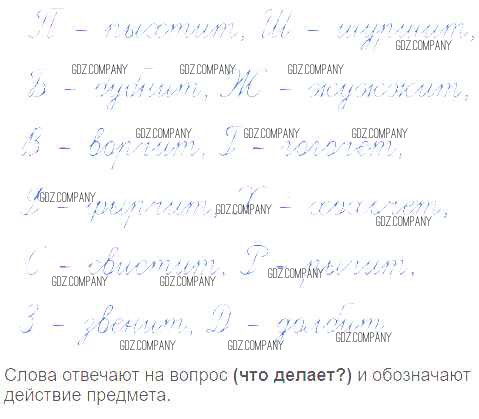 П – пыхтит, Ш – шуршит,
GDZ.COMPANY
GDZ.COMPANY GDZ.COMPANY GDZ.COMPANY
Б – бубнит, Ж – жужжит,
GDZ.COMPANY GDZ.COMPANY GDZ.COMPANY
В – ворчит, Г – гогочет,
GDZ.COMPANY
Ф – фырчит, Х – хохочет,
GDZ.COMPANY
GDZ.COMPANY
С – свистит, Р – рычит,
GDZ.COMPANY
GDZ.COMPANY GDZ.COMPANY
З – звенит, Д – долбит
GDZ.COMPANY GDZ.COMPANY
Слова отвечают на вопрос (что делает?) и обозначают
действие предмета.